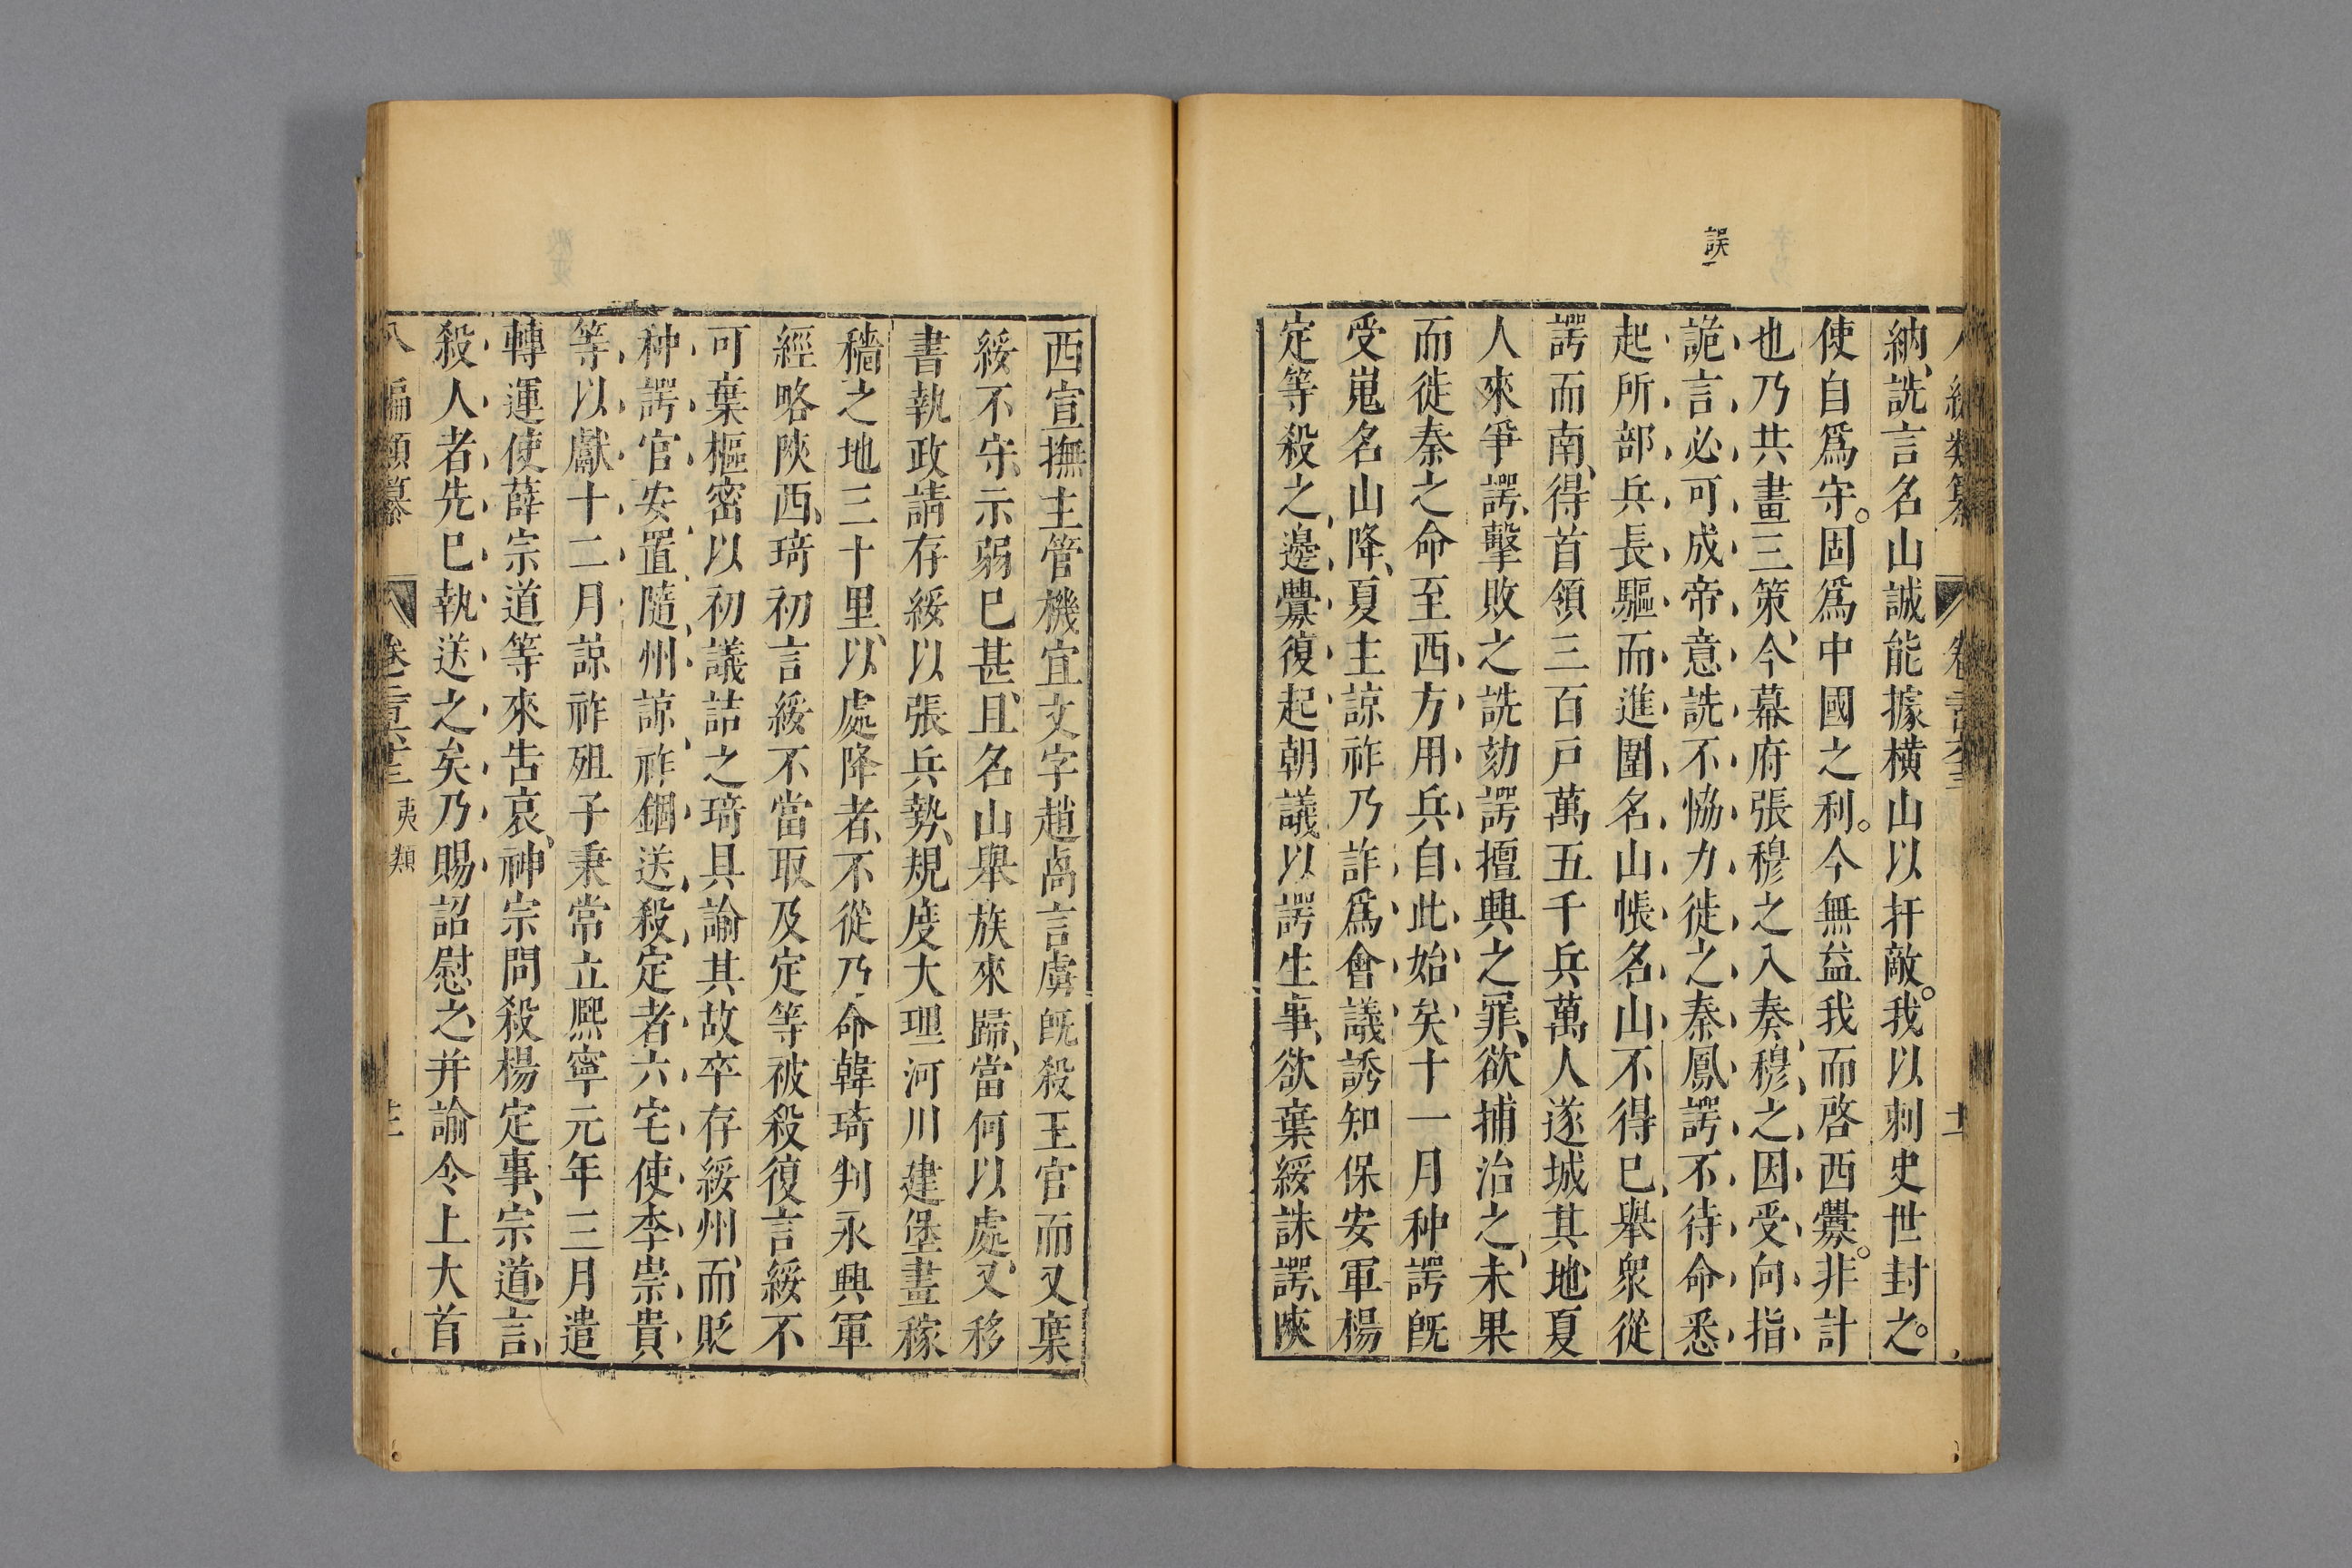 誤
納詵言名山誠能據橫山以扞敵我以刺史世封之
使自爲守固爲中國之利今無益我而啓西釁非計
也乃共畫三策今幕府張穆之入奏穆之因受向指
詭言必可成帝意詵不恊力徙之秦鳳諤不待命悉
起所部兵長驅而進圍名山帳名山不得已舉衆從
諤而南得首領三百戸萬五千兵萬人遂城其地夏
人來爭諤擊敗之詵劾諤擅興之罪欲捕治之未果
而徙秦之命至西方用兵自此始矣十一月种諤旣
受嵬名山降夏主諒祚乃詐爲會議誘知保安軍楊
定等殺之邊釁復起朝議以諤生事欲棄綏誅諤陝
西宣撫主管機宜文字趙卨言虜旣殺王官而又棄
綏不守示弱已甚且名山舉族來歸當何以處又移
書執政請存綏以張兵勢規度大理河川建堡畫稼
穡之地三十里以處降者不從乃命韓琦判永興軍
經略陝西琦初言綏不當取及定等被殺復言綏不
可棄樞密以初議詰之琦具諭其故卒存綏州而貶
种諤官安置隨州諒祚錮送殺定者六宅使李崇貴
等以獻十二月諒祚殂子秉常立熈寧元年三月遣
轉運使薛宗道等來告哀神宗問殺楊定事宗道言
殺人者先已執送之矣乃賜詔慰之并諭令上大首
八編類纂 夷類